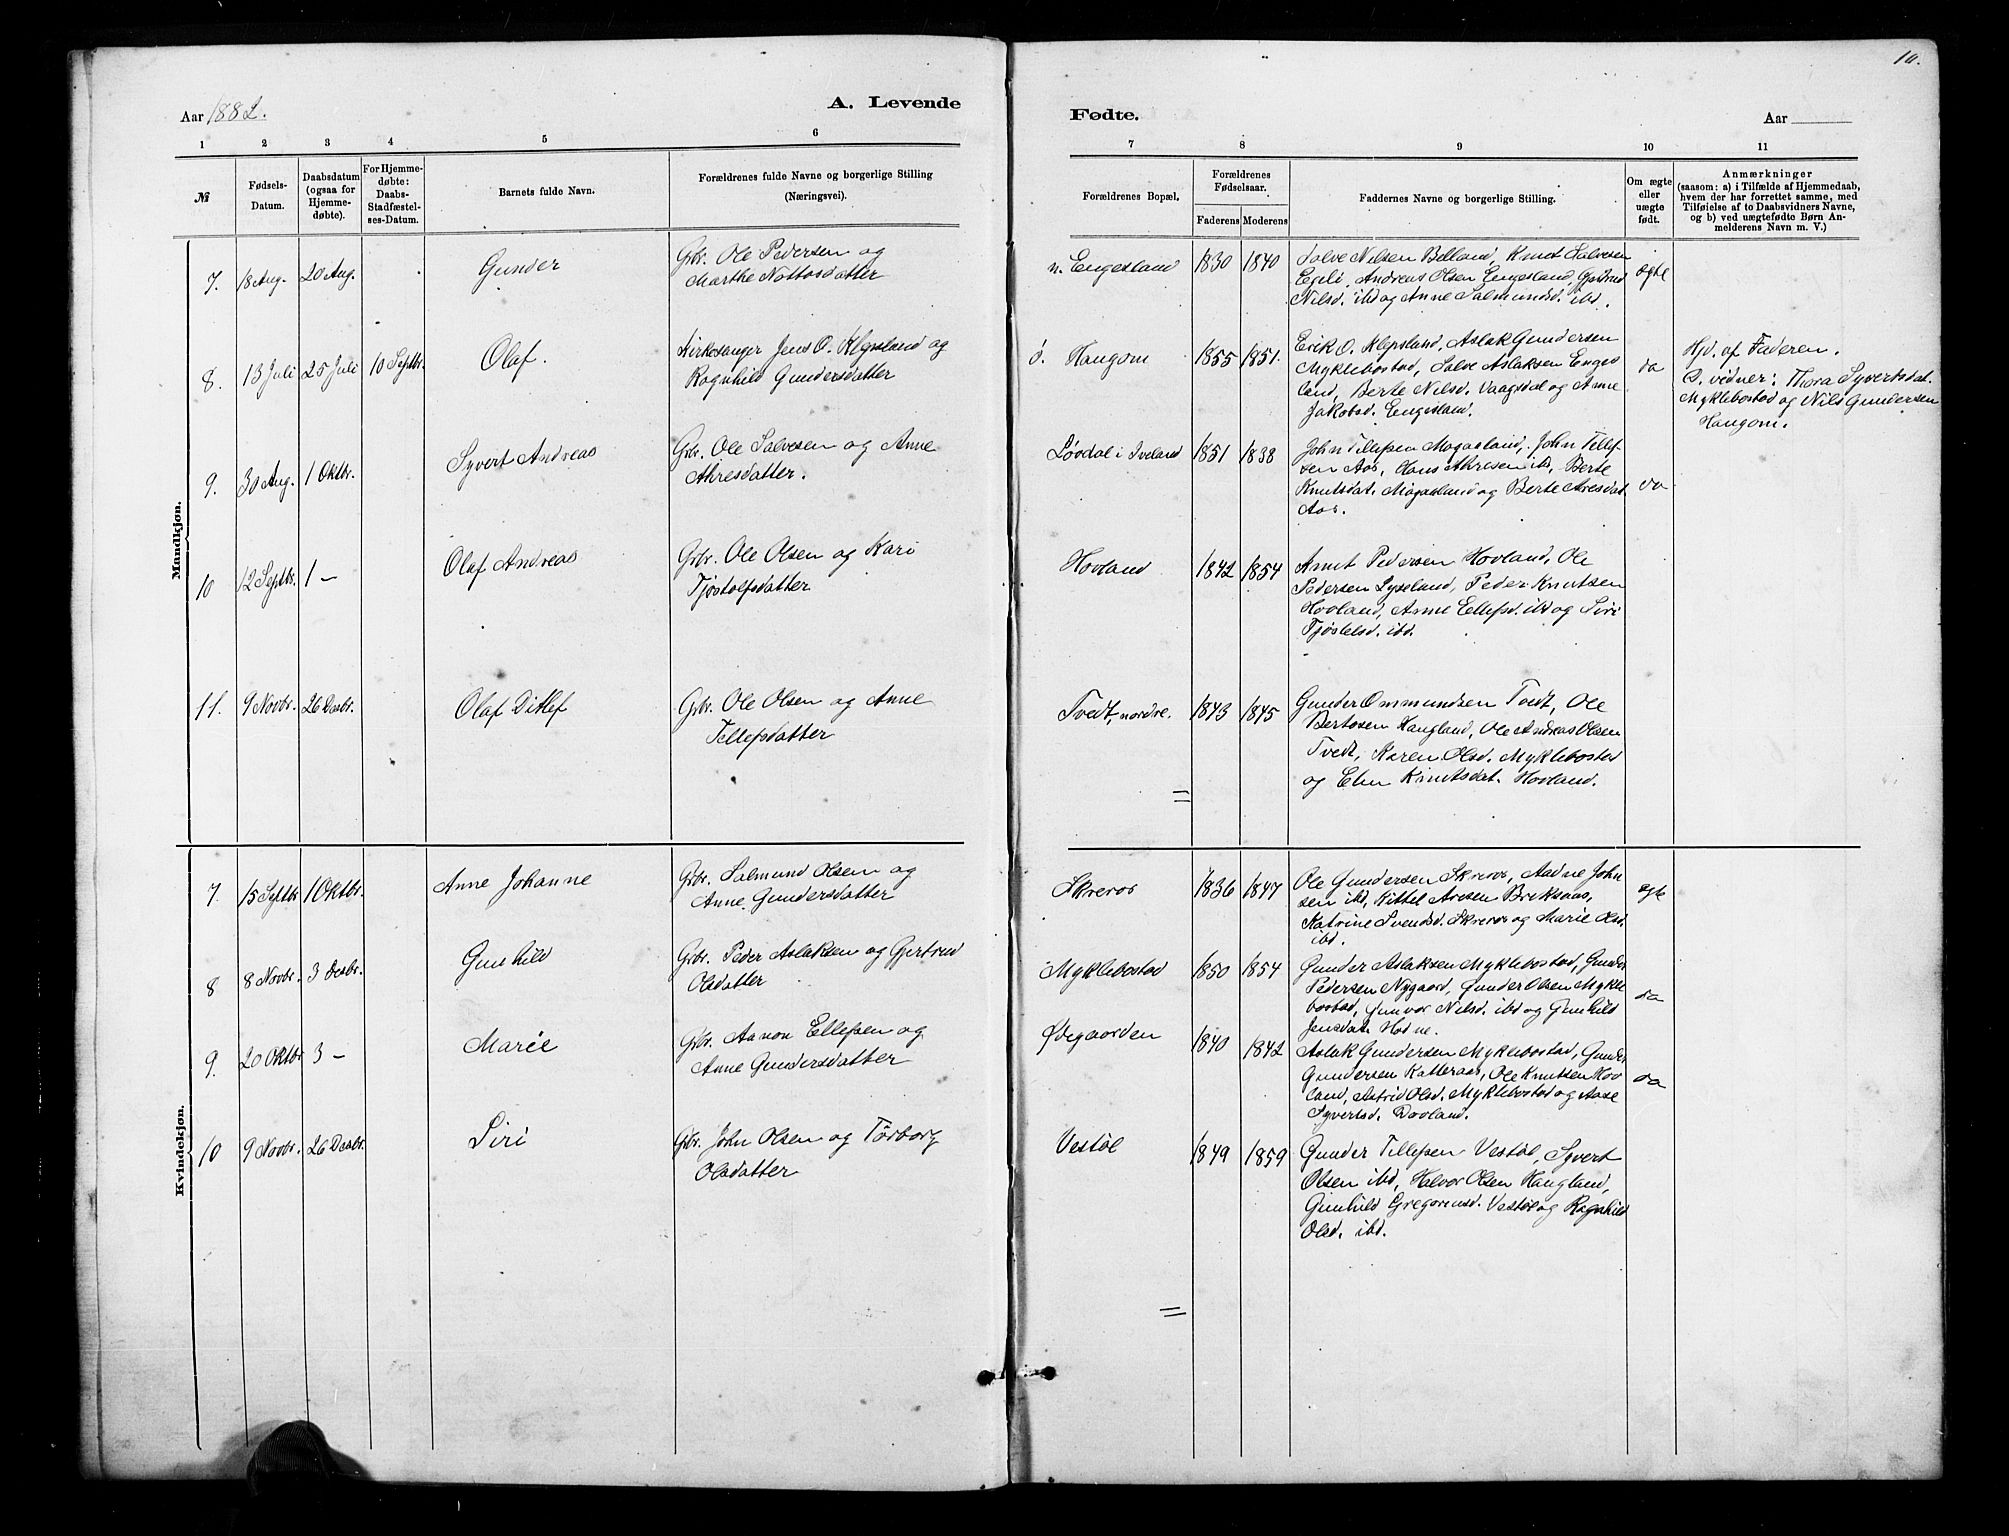 10.
Aar 1882.
A. Levende
Fødte.
Aar
1 2 3 4 5 6 7 8 9 10 11
№
Fødsels-
Datum.
Daabsdatum
(ogsaa for
Hjemme-
døbte).
For Hjemme-
døbte:
Daabs-
Stadfæstel-
ses-Datum.
Barnets fulde Navn.
Forældrenes fulde Navne og borgerlige Stilling
(Næringsvei).
Forældrenes Bopæl.
Forældrenes
Fødselsaar.
Faderens Moderens
Faddernes Navne og borgerlige Stilling.
Om ægte
eller
uægte
født.
Anmærkninger
(saasom: a) i Tilfælde af Hjemmedaab,
hvem der har forrettet samme, med
Tilføielse af to Daabsvidners Navne,
og b) ved uægtefødte Børn An-
melderens Navn m. V.)
Mandkjøn.
7. 18 Aug. 20 Aug.
Gunder
Gbr. Ole Pedersen og
Marthe Nottosdatter
n. Engesland
1830 1840
Salve Nilsen Belland, Knut Salvesen
Egeli, Andreas Olsen Engesland, Gjertrud
Nilsd. ibd og Anne Salmundsd. ibd.
ægte
8. 13 Juli 25 Juli 10 Septbr.
Olaf.
Kirkesanger Jens O. Klepsland og
Ragnhild Gundersdatter
ø. Haugom
1855 1851.
Erik O. Klepsland, Aslak Gundersen
Myklebostad, Salve Aslaksen Enges
land, Berte Nilsd. Vaagsdal og Anne
Jakobsd. Engesland.
da
Hjd. af Faderen.
D. vidner: Thora Syvertsdat.
Myklebostad og Nils Gundersen
Haugom.
9. 30 Aug. 1 Oktbr.
Syvert Andreas
Gbr. Ole Salvesen og Anne
Athresdatter.
Løvdal i Iveland
1851 1838
John Tellefsen Mogaesland, John Tellef
sen Aas, Hans Athresen ibd, Berte
Knutsdat. Mogaesland og Berte Aresdat.
Aas.
da
10 12 Septbr. 1 —
Olaf Andreas
Gbr. Ole Olsen og Kari
Tjøstolfsdatter
Hovland
1842 1854
Arnt Pedersen Hovland, Ole
Pedersen Lyseland, Peder Knutsen
Hovland, Anne Ellefsd. ibd og Siri
Tjøstelsd. ibd.
11. 9 Novbr. 26 Decbr.
Olaf Ditlef
Gbr. Ole Olsen og Anne
Tellefsdatter
Tvedt, nordre.
1843 1845
Gunder Ommundsen Tvedt, Ole
Bertosen Haugland, Ole Andreas Olsen
Tvedt, Karen Olsd. Myklebostad
og Elen Knutsdat. Hovland.
Kvindekjøn.
7. 15 Septbr 1 Oktbr.
Anne Johanne
Gbr. Salmund Olsen og
Anne Gundersdatter
Skreros
1836 1847
Ole Gundersen Skreros, Aadne John
sen ibd, Kittel Aresen Breksaas,
Katrine Svendsd. Skreros og Marie Olsd.
ibd.
ægte
8 8 Novbr. 3 Decbr.
Gunhild
Gbr. Peder Aslaksen og Gjertrud
Olsdatter
Myklebostad
1850 1854
Gunder Aslaksen Myklebostad, Gunder
Pedersen Nygaard, Gunder Olsen Mykle
bostad, Gunvor Nilsd. ibd og Gunhild
Jensdat. Hodne.
da
9. 20 Oktbr 3 —
Marie
Gbr. Aanon Ellefsen og
Anne Gundersdatter
Ødegaarden
1840 1842
Aslak Gundersen Myklebostad, Gunder
Gundersen Katteraas, Ole Knutsen Hov
land, Astrid Olsd. Myklebostad og Aase
Syvertsd. Dovland.
da
10 9 Novbr. 26 Decbr.
Siri
Gbr. John Olsen og Torborg
Olsdatter
Vestøl
1849 1859
Gunder Tellefsen Vestøl, Syvert
Olsen ibd, Halvor Olsen Haugland,
Gunhild Gregoriusd. Vestøl og Ragnhild
Olsd. ibd.